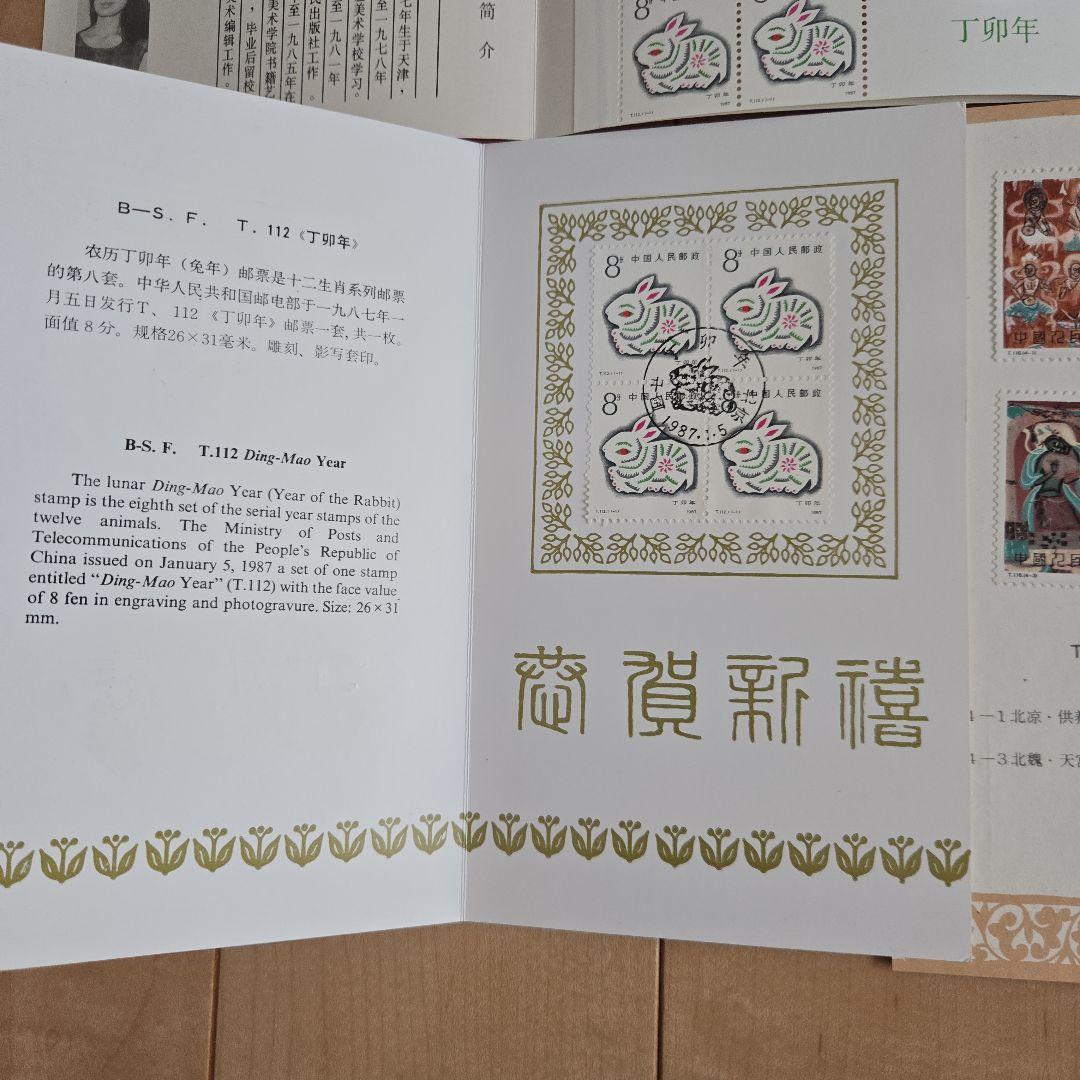 简介
七年生于天津，
至一九七八年
美术学校学习。
至一九八一年
民出版社工作。
至一九八五年在
美术学院书籍艺
，毕业后留校
美术编辑工作。
8分
丁卯年
T.112.(1-1)
1987
丁卯年
T.112.(1-1)
1987
丁卯年
B—S. F. T. 112《丁卯年》
农历丁卯年（兔年）邮票是十二生肖系列邮票
的第八套。中华人民共和国邮电部于一九八七年一
月五日发行T、112《丁卯年》邮票一套，共一枚。
面值8分。规格26×31毫米。雕刻、影写套印。
B-S. F. T.112 Ding-Mao Year
The lunar Ding-Mao Year (Year of the Rabbit)
stamp is the eighth set of the serial year stamps of the
twelve animals. The Ministry of Posts and
Telecommunications of the People's Republic of
China issued on January 5, 1987 a set of one stamp
entitled “Ding-Mao Year” (T.112) with the face value
of 8 fen in engraving and photogravure. Size: 26×31
mm.
8分 中国人民邮政
丁卯年
T.112.(1-1)
8分 中国人民邮政
丁卯年
T.112.(1-1) 1987
8分 中国人民邮政
丁卯年
T.112.(1-1) 1987
8分 中国人民邮政
丁卯年
T.112.(1-1) 1987
丁卯年
中国 北京
1987.1.5
恭賀新禧
中國人民
中國人民
T
4—1北凉·供养
4—3北魏·天宫